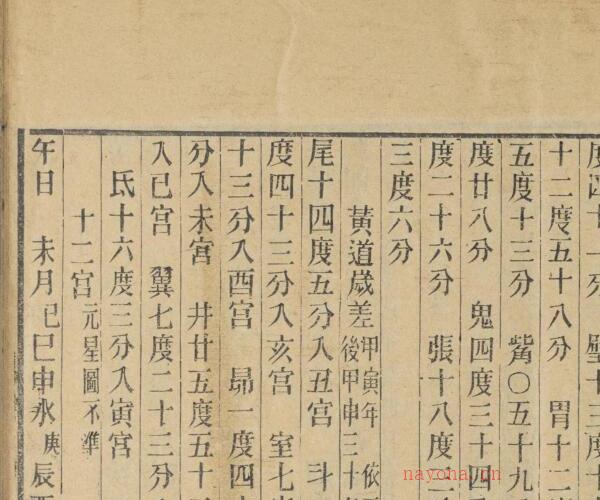 度四十一分　壁十三度十
十二度五十八分　胃十二
五度十三分　觜〇五十九
度廿八分　鬼四度三十四
度二十六分　張十八度二
三度六分
黃道歲差甲寅年　依
後甲申三十
尾十四度五分入丑宮　斗
度四十三分入亥宮　室七
十三分入酉宮　昴一度四
分入未宮　井廿五度五十
入巳宮　翼七度二十三分
氐十六度三分入寅宮
十二宮元星圖不準
午日　未月己巳申水庚辰
nayona.cn